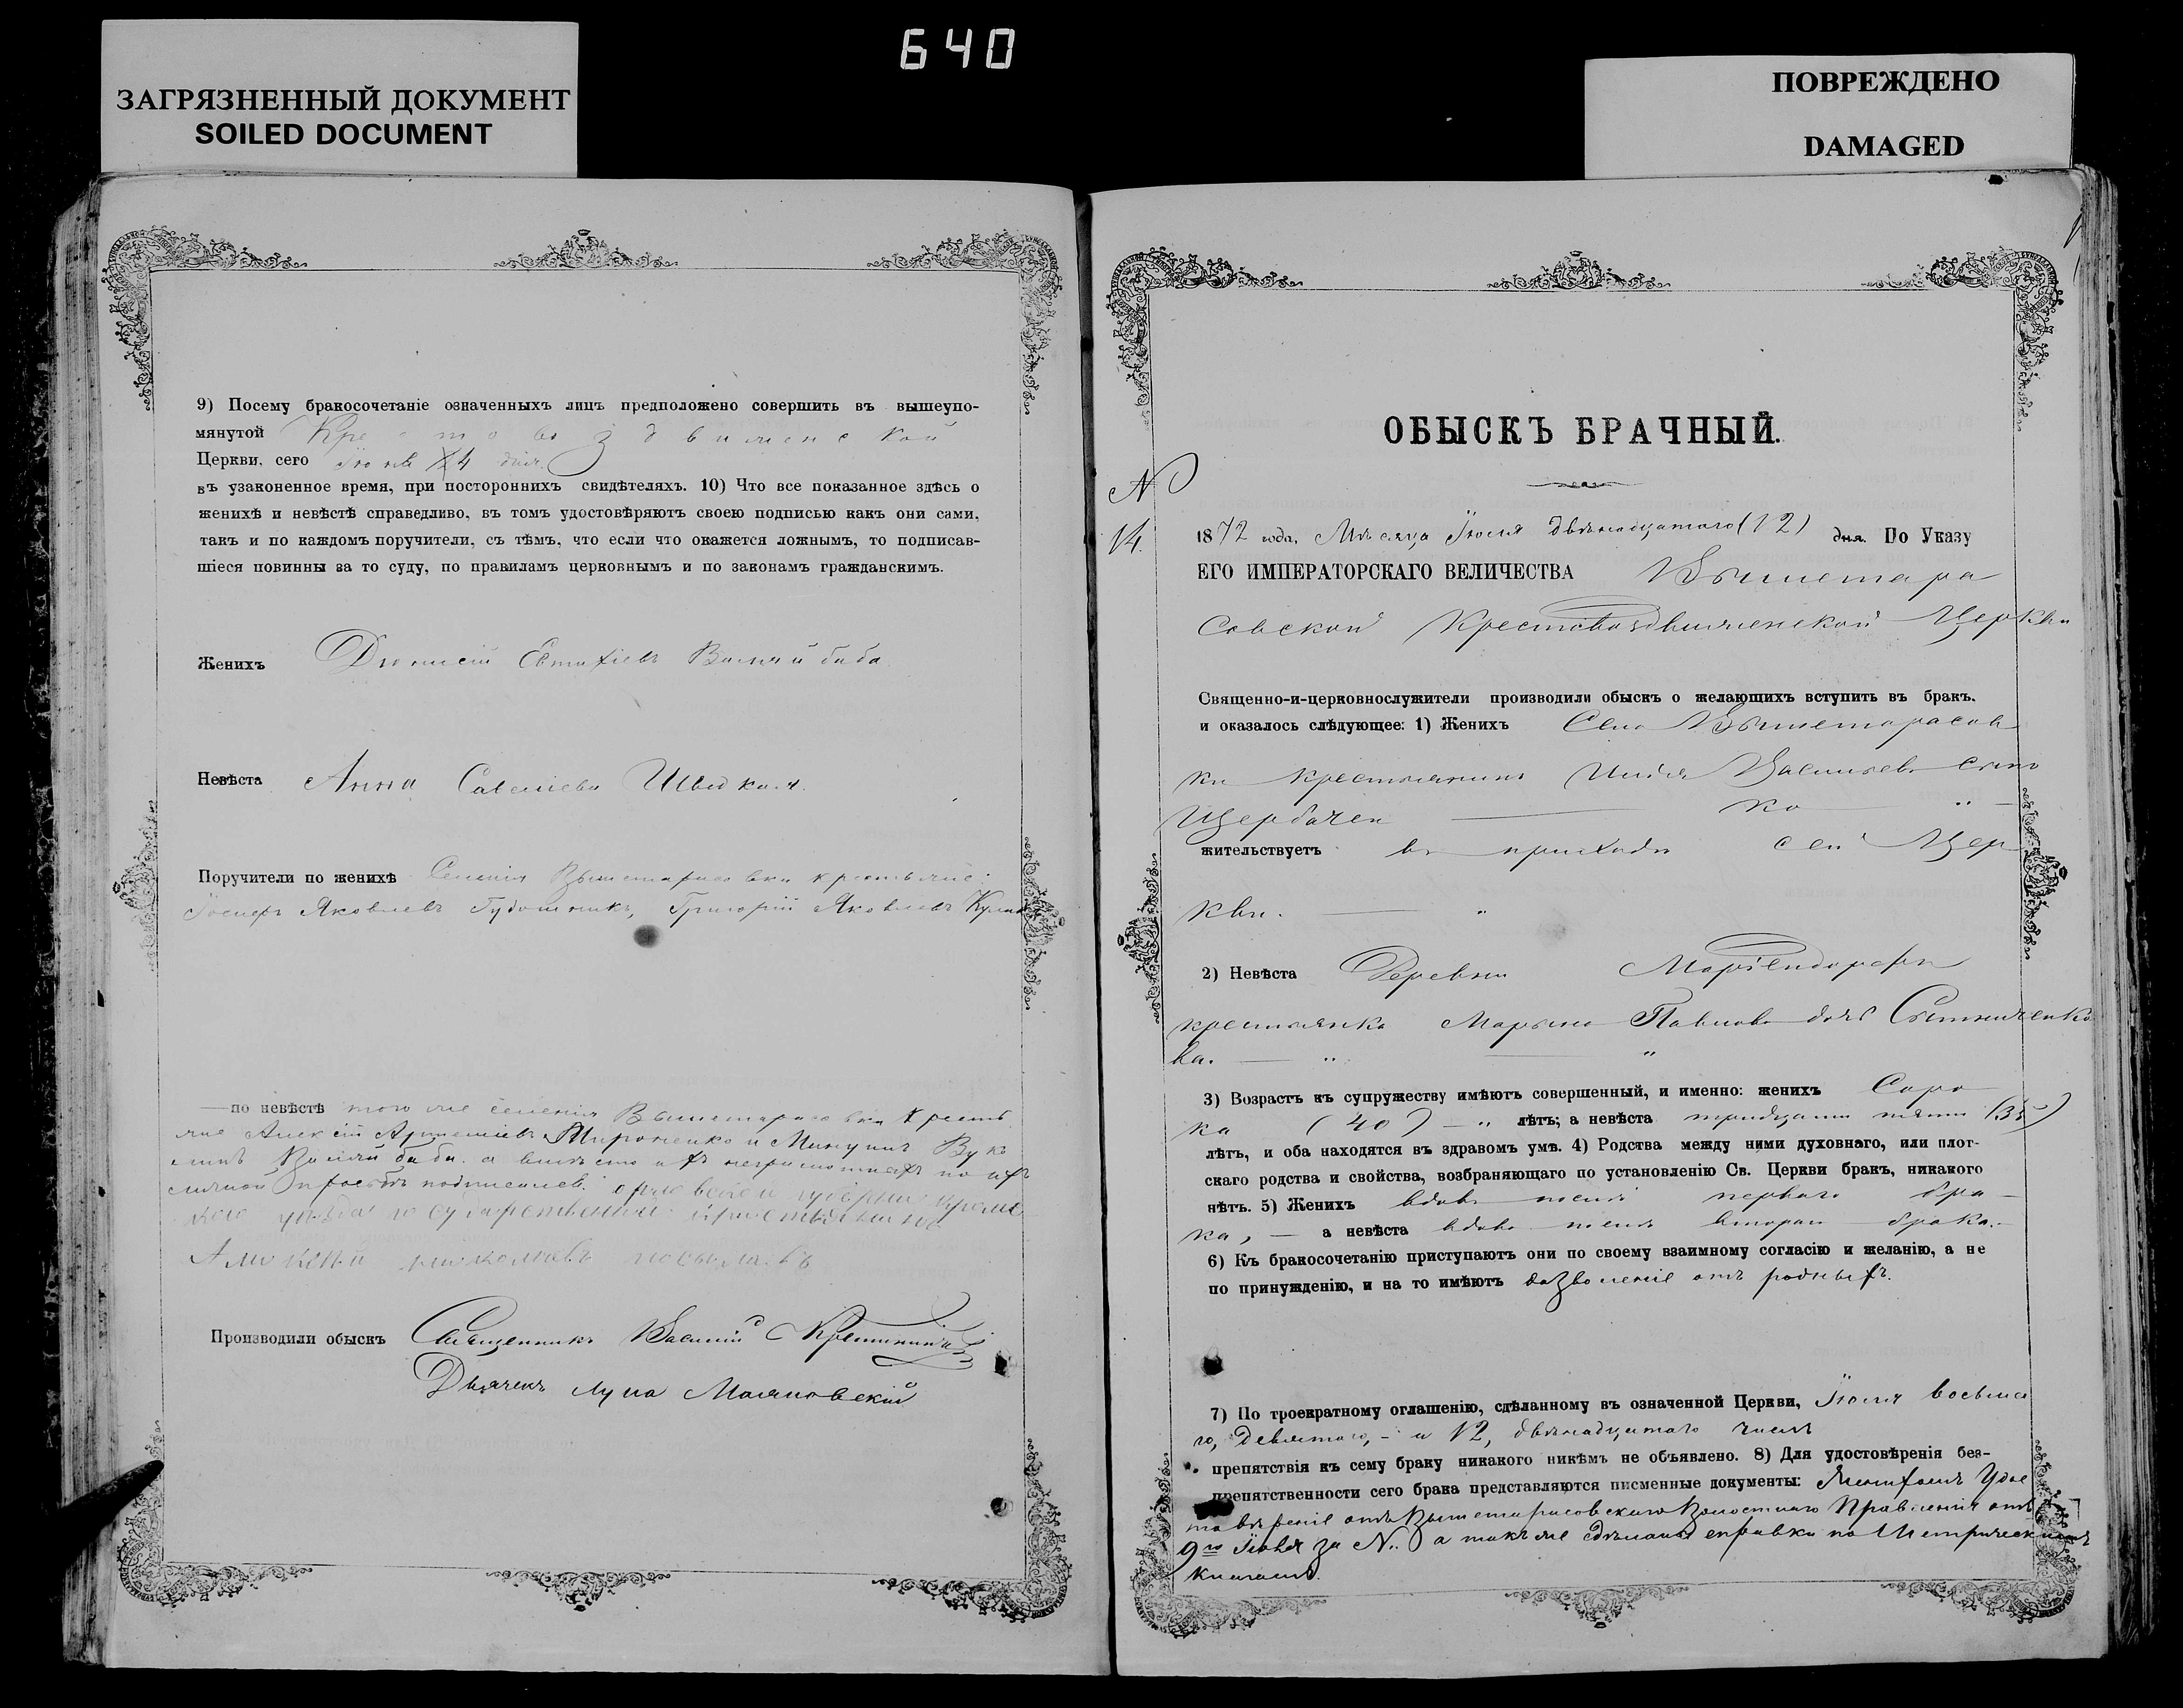 640
ЗАГРЯЗНЕННЫЙ ДОКУМЕНТ
SOILED DOCUMENT
ПОВРЕЖДЕНО
DAMAGED
9) Посему бракосочетаніе означенныхъ лицъ предположено совершить въ вышеупо-
мянутой Крестовоздвиженской
Церкви, сего
въ узаконенное время, при постороннихъ свидѣтеляхъ. 10) Что все показанное здѣсь о
женихѣ и невѣстѣ справедливо, въ томъ удостовѣряютъ своею подписью какъ они сами,
такъ и по каждомъ поручители, съ тѣмъ, что если что окажется ложнымъ, то подписав-
шіеся повинны за то суду, по правиламъ церковнымъ и по законамъ гражданскимъ.
Женихъ Діонисій Евтихіевъ
Невѣста Анна Савеліева Швидкая.
Поручители по женихѣ Селенія Вышетарасовки крестьяне:
Іосифъ Яковлевъ Григорій Яковлевъ
—по невѣстѣ того же селенія Вышетарасовки кресть
яне Алексій Артеміевъ Мироненко и
а вмѣсто ихъ неграмотныхъ по ихъ
личной просьбѣ
Производили обыскъ Священникъ Василій
Дьячекъ Лука
ОБЫСКЪ БРАЧНЫЙ.
№
14.
1872 года, Мѣсяца Іюля двѣнадцатаго (12) дня. По Указу
ЕГО ИМПЕРАТОРСКАГО ВЕЛИЧЕСТВА Вышетара
совской Крестовоздвиженской Церкви
Священно-и-церковнослужители производили обыскъ о желающихъ вступить въ бракъ.
и оказалось слѣдующее: 1) Женихъ Села Вышетарасов
ки крестьянинъ Илія Васильевъ сынъ
Щербачен — ко "
жительствуетъ въ приходѣ сей Цер
кви. — "
2) Невѣста Деревни Маріендорфъ
крестьянка Марина Павлова дочь Сытниченко
ва. — " — "
3) Возрастъ къ супружеству имѣютъ совершенный, и именно: женихъ Соро
ка (40) — " лѣтъ; а невѣста тридцати пяти (35)
лѣтъ, и оба находятся въ здравомъ умѣ. 4) Родства между ними духовнаго, или плот-
скаго родства и свойства, возбраняющаго по установленію Св. Церкви бракъ, никакого
нѣтъ. 5) Женихъ вдовъ послѣ перваго бра
ка, — а невѣста вдова послѣ втораго брака.
6) Къ бракосочетанію приступаютъ они по своему взаимному согласію и желанію, а не
по принужденію, и на то имѣютъ дозволеніе отъ родныхъ.
7) По троекратному оглашенію, сдѣланному въ означенной Церкви, Іюля восьма
го, девятаго, - и 12, двѣнадцатаго числъ
препятствія къ сему браку никакого никѣмъ не объявлено. 8) Для удостовѣренія без-
препятственности сего брака представляются писменные документы: Удос
товѣреніе отъ Вышетарасовскаго Волостнаго Правленія отъ
9го Іюля за №. а такъ же справки по Метрическимъ
книгамъ.